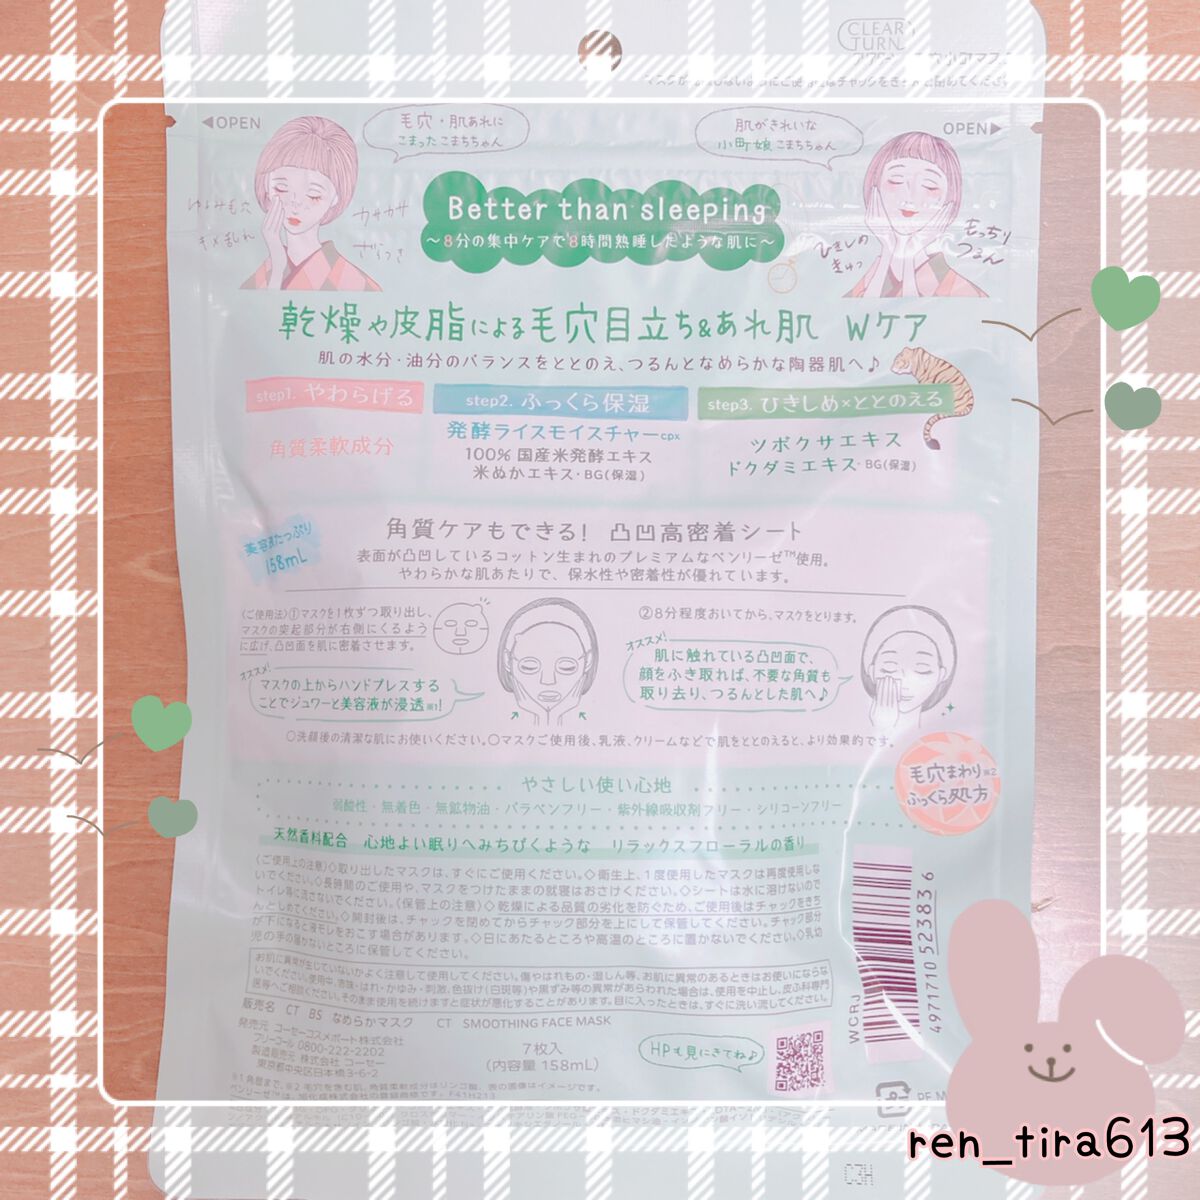 CLEAR TURN
◀OPEN
毛穴・肌あれに
こまった こまちちゃん
肌がきれいな
小町娘 こまちちゃん
OPEN▶
ゆるみ毛穴
キメ乱れ
カサカサ
ざらつき
Better than sleeping
～8分の集中ケアで8時間熟睡したような肌に～
ひきしめ
きゅっ
もっちり
つるん
乾燥や皮脂による毛穴目立ち&あれ肌 Wケア
肌の水分・油分のバランスをととのえ、つるんとなめらかな陶器肌へ♪
step1. やわらげる
角質柔軟成分
step2. ふっくら保湿
発酵ライスモイスチャーcpx
100% 国産米発酵エキス
米ぬかエキス・BG(保湿)
step3. ひきしめ×ととのえる
ツボクサエキス
ドクダミエキス・BG(保湿)
美容液たっぷり
158mL
角質ケアもできる! 凸凹高密着シート
表面が凸凹しているコットン生まれのプレミアムなベンリーゼ™使用。
やわらかな肌あたりで、保水性や密着性が優れています。
〈ご使用法〉①マスクを1枚ずつ取り出し、
マスクの突起部分が右側にくるよう
に広げ、凸凹面を肌に密着させます。
オススメ!
マスクの上からハンドプレスする
ことでジュワーと美容液が浸透※1!
②8分程度おいてから、マスクをとります。
オススメ!
肌に触れている凸凹面で、
顔をふき取れば、不要な角質も
取り去り、つるんとした肌へ♪
○洗顔後の清潔な肌にお使いください。○マスクご使用後、乳液、クリームなどで肌をととのえると、より効果的です。
毛穴まわり※2
ふっくら処方
やさしい使い心地
弱酸性・無着色・無鉱物油・パラベンフリー・紫外線吸収剤フリー・シリコーンフリー
天然香料配合 心地よい眠りへみちびくような リラックスフローラルの香り
〈ご使用上の注意〉◇取り出したマスクは、すぐにご使用ください。◇衛生上、1度使用したマスクは再度使用しな
いでください。◇長時間のご使用や、マスクをつけたままの就寝はおさけください。◇シートは水に溶けないので
トイレ等に流さないでください。〈保管上の注意〉◇乾燥による品質の劣化を防ぐため、ご使用後はチャックをきち
んとしめてください。◇開封後は、チャックを閉めてからチャック部分を上にして保管してください。チャック部分
が下になると液モレをおこす場合があります。◇日にあたるところや高温のところに置かないでください。◇乳幼
児の手の届かないところに保管してください。
お肌に異常が生じていないかよく注意して使用してください。傷やはれもの・湿しん等、お肌に異常のあるときはお使いにならな
いでください。使用中、赤味・はれ・かゆみ・刺激、色抜け(白斑等)や黒ずみ等の異常があらわれた場合は、使用を中止し、皮ふ科専門
医等へご相談ください。そのまま使用を続けますと症状が悪化することがあります。目に入ったときは、すぐに洗い流してください。
販売名 CT BS なめらかマスク CT SMOOTHING FACE MASK
発売元 コーセーコスメポート株式会社
フリーコール 0800-222-2202
製造販売元 株式会社 コーセー
東京都中央区日本橋3-6-2
7枚入
(内容量 158mL)
HPも見にきてね♪
WCRJ
4971710523836
※1 角層まで。※2 毛穴を含む肌。角質柔軟成分はリンゴ酸。
C3H
ren_tira613